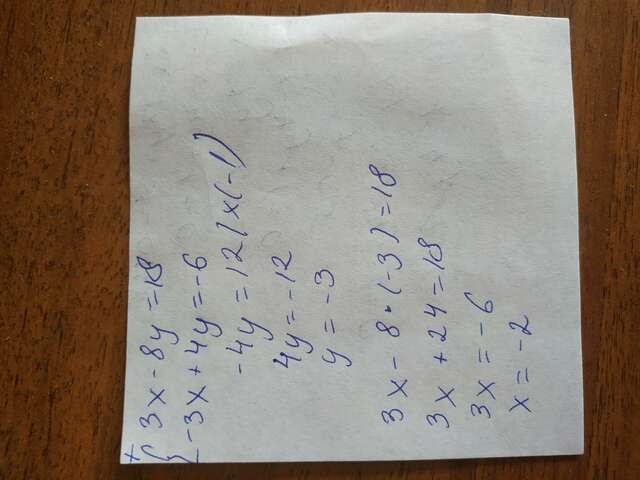 + { 3x - 8y = 18
-3x + 4y = -6
-4y = 12 | x(-1)
4y = -12
y = -3
3x - 8 • (-3) = 18
3x + 24 = 18
3x = -6
x = -2